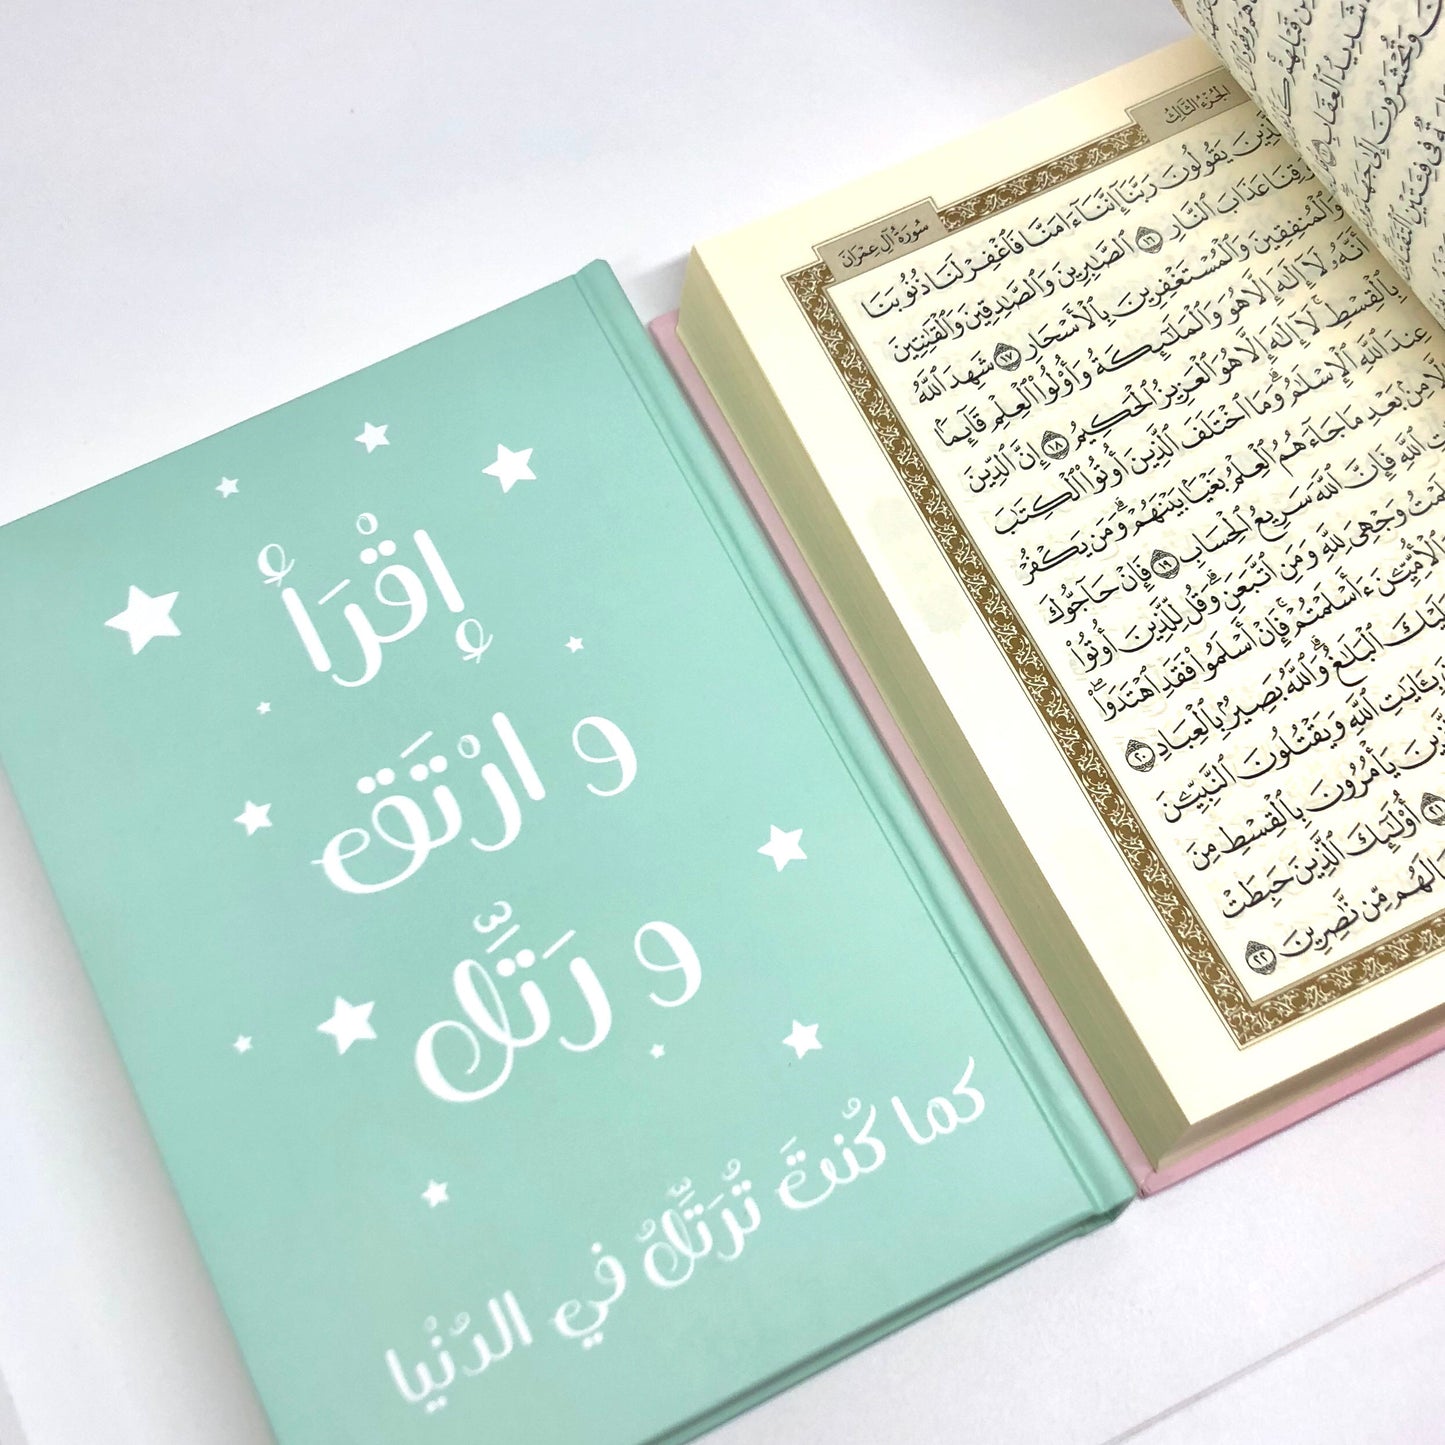 إقْرَأ
و ارْتَقِ
و رَتِّل
كما كُنتَ تُرَتِّلُ في الدُنْيا
الجُزْءُ الثَّالِثُ
سُورَةُ آلِ عِمْرَانَ
يَقُولُونَ رَبَّنَآ إِنَّنَآ ءَامَنَّا فَٱغْفِرْ لَنَا ذُنُوبَنَا
وَقِنَا عَذَابَ ٱلنَّارِ ١٦ ٱلصَّٰبِرِينَ وَٱلصَّٰدِقِينَ وَٱلْقَٰنِتِينَ
وَٱلْمُنفِقِينَ وَٱلْمُسْتَغْفِرِينَ بِٱلْأَسْحَارِ ١٧ شَهِدَ ٱللَّهُ
أَنَّهُۥ لَآ إِلَٰهَ إِلَّا هُوَ وَٱلْمَلَٰٓئِكَةُ وَأُو۟لُوا۟ ٱلْعِلْمِ قَآئِمًۢا
بِٱلْقِسْطِۚ لَآ إِلَٰهَ إِلَّا هُوَ ٱلْعَزِيزُ ٱلْحَكِيمُ ١٨ إِنَّ ٱلدِّينَ
عِندَ ٱللَّهِ ٱلْإِسْلَٰمُۗ وَمَا ٱخْتَلَفَ ٱلَّذِينَ أُوتُوا۟ ٱلْكِتَٰبَ
مِنۢ بَعْدِ مَا جَآءَهُمُ ٱلْعِلْمُ بَغْيًۢا بَيْنَهُمْۗ وَمَن يَكْفُرْ
ٱللَّهِ فَإِنَّ ٱللَّهَ سَرِيعُ ٱلْحِسَابِ ١٩ فَإِنْ حَآجُّوكَ
وَجْهِىَ لِلَّهِ وَمَنِ ٱتَّبَعَنِۗ وَقُل لِّلَّذِينَ أُوتُوا۟
ءَأَسْلَمْتُمْۚ فَإِنْ أَسْلَمُوا۟ فَقَدِ ٱهْتَدَوا۟ۖ
ٱلْبَلَٰغُۗ وَٱللَّهُ بَصِيرٌۢ بِٱلْعِبَادِ ٢٠
بِـَٔايَٰتِ ٱللَّهِ وَيَقْتُلُونَ ٱلنَّبِيِّـۧنَ
يَأْمُرُونَ بِٱلْقِسْطِ مِنَ
٢١ أُو۟لَٰٓئِكَ ٱلَّذِينَ حَبِطَتْ
لَهُم مِّن نَّٰصِرِينَ ٢٢